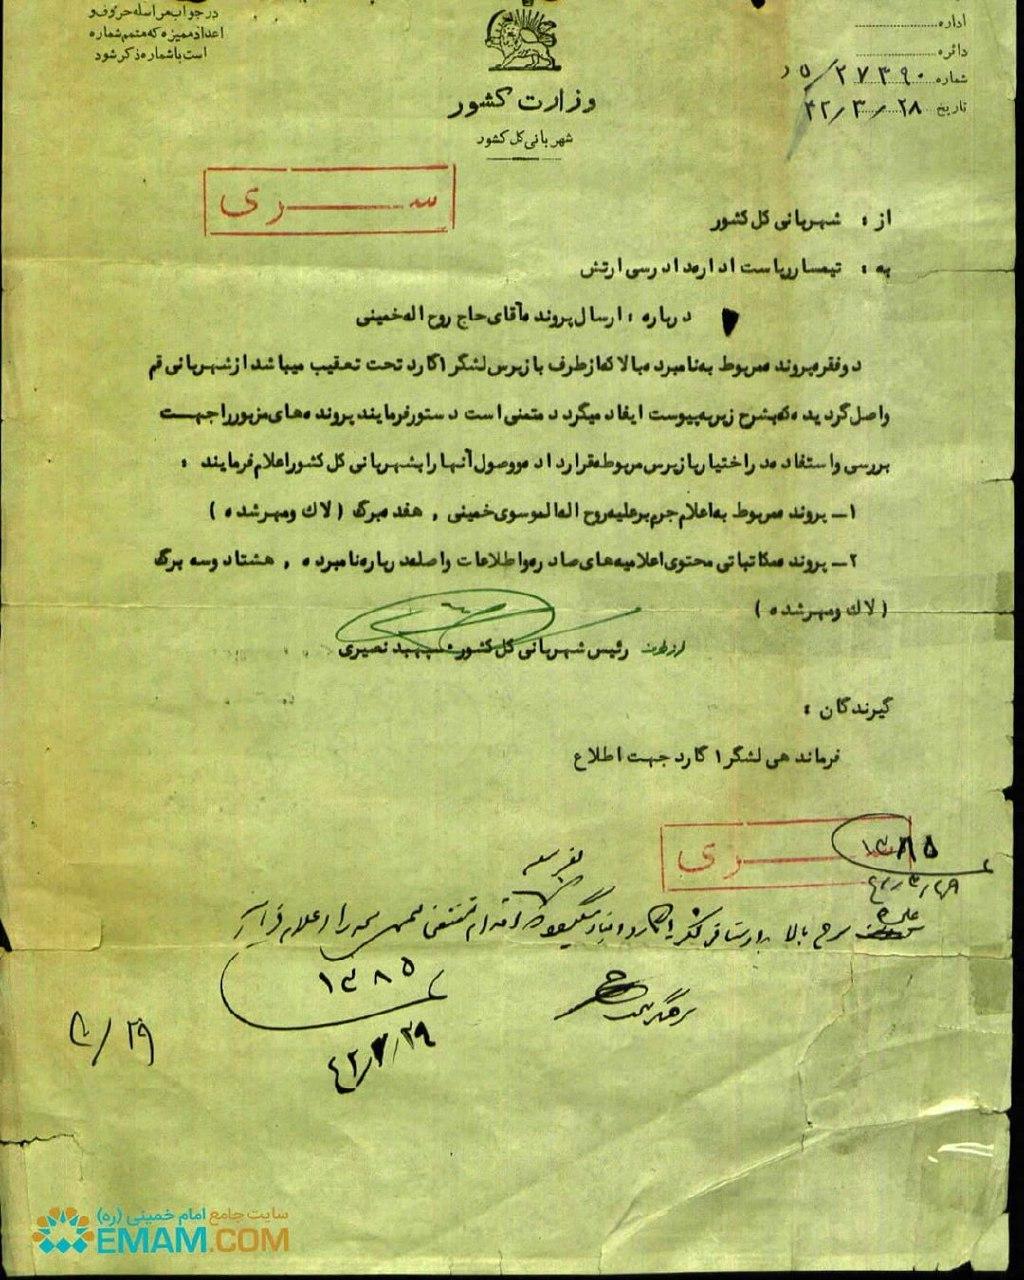 در جواب مراسله حروف و
اعداد ممیزه که متمم شماره
است باشماره ذکر شود
اداره
دائره
شماره ۲۷۳۹۰/۵ر
تاریخ ۴۲/۳/۲۸
وزارت کشور
شهربانی کل کشور
سری
از : شهربانی کل کشور
به : تیمسار ریاست اداره دادرسی ارتش
درباره : ارسال پرونده آقای حاج روح اله خمینی
دو فقره پرونده مربوط به نامبرده بالا که از طرف بازپرس لشگر ۱ گارد تحت تعقیب میباشد از شهربانی قم
واصل گردیده که بشرح زیر به پیوست ایفاد میگردد متمنی است دستور فرمایند پرونده های مزبور را جهت
بررسی و استفاده در اختیار بازپرس مربوطه قرار داده و وصول آنها را بشهربانی کل کشور اعلام فرمایند :
۱ـ پرونده مربوط به اعلام جرم بر علیه روح اله الموسوی خمینی , هفده برگ ( لاك و مهر شده )
۲ـ پرونده مکاتباتی محتوی اعلامیه های صادره و اطلاعات واصله درباره نامبرده , هشتاد و سه برگ
( لاك و مهر شده )
از طرف رئیس شهربانی کل کشور . سپهبد نصیری
گیرندگان :
فرماندهی لشگر ۱ گارد جهت اطلاع
سری
۱۳۸۵
۴۲/۳/۲۹
بالا
را اعلام
۱۳۸۵
۴۲/۳/۲۹
۲۹
سایت جامع امام خمینی (ره)
EMAM.COM